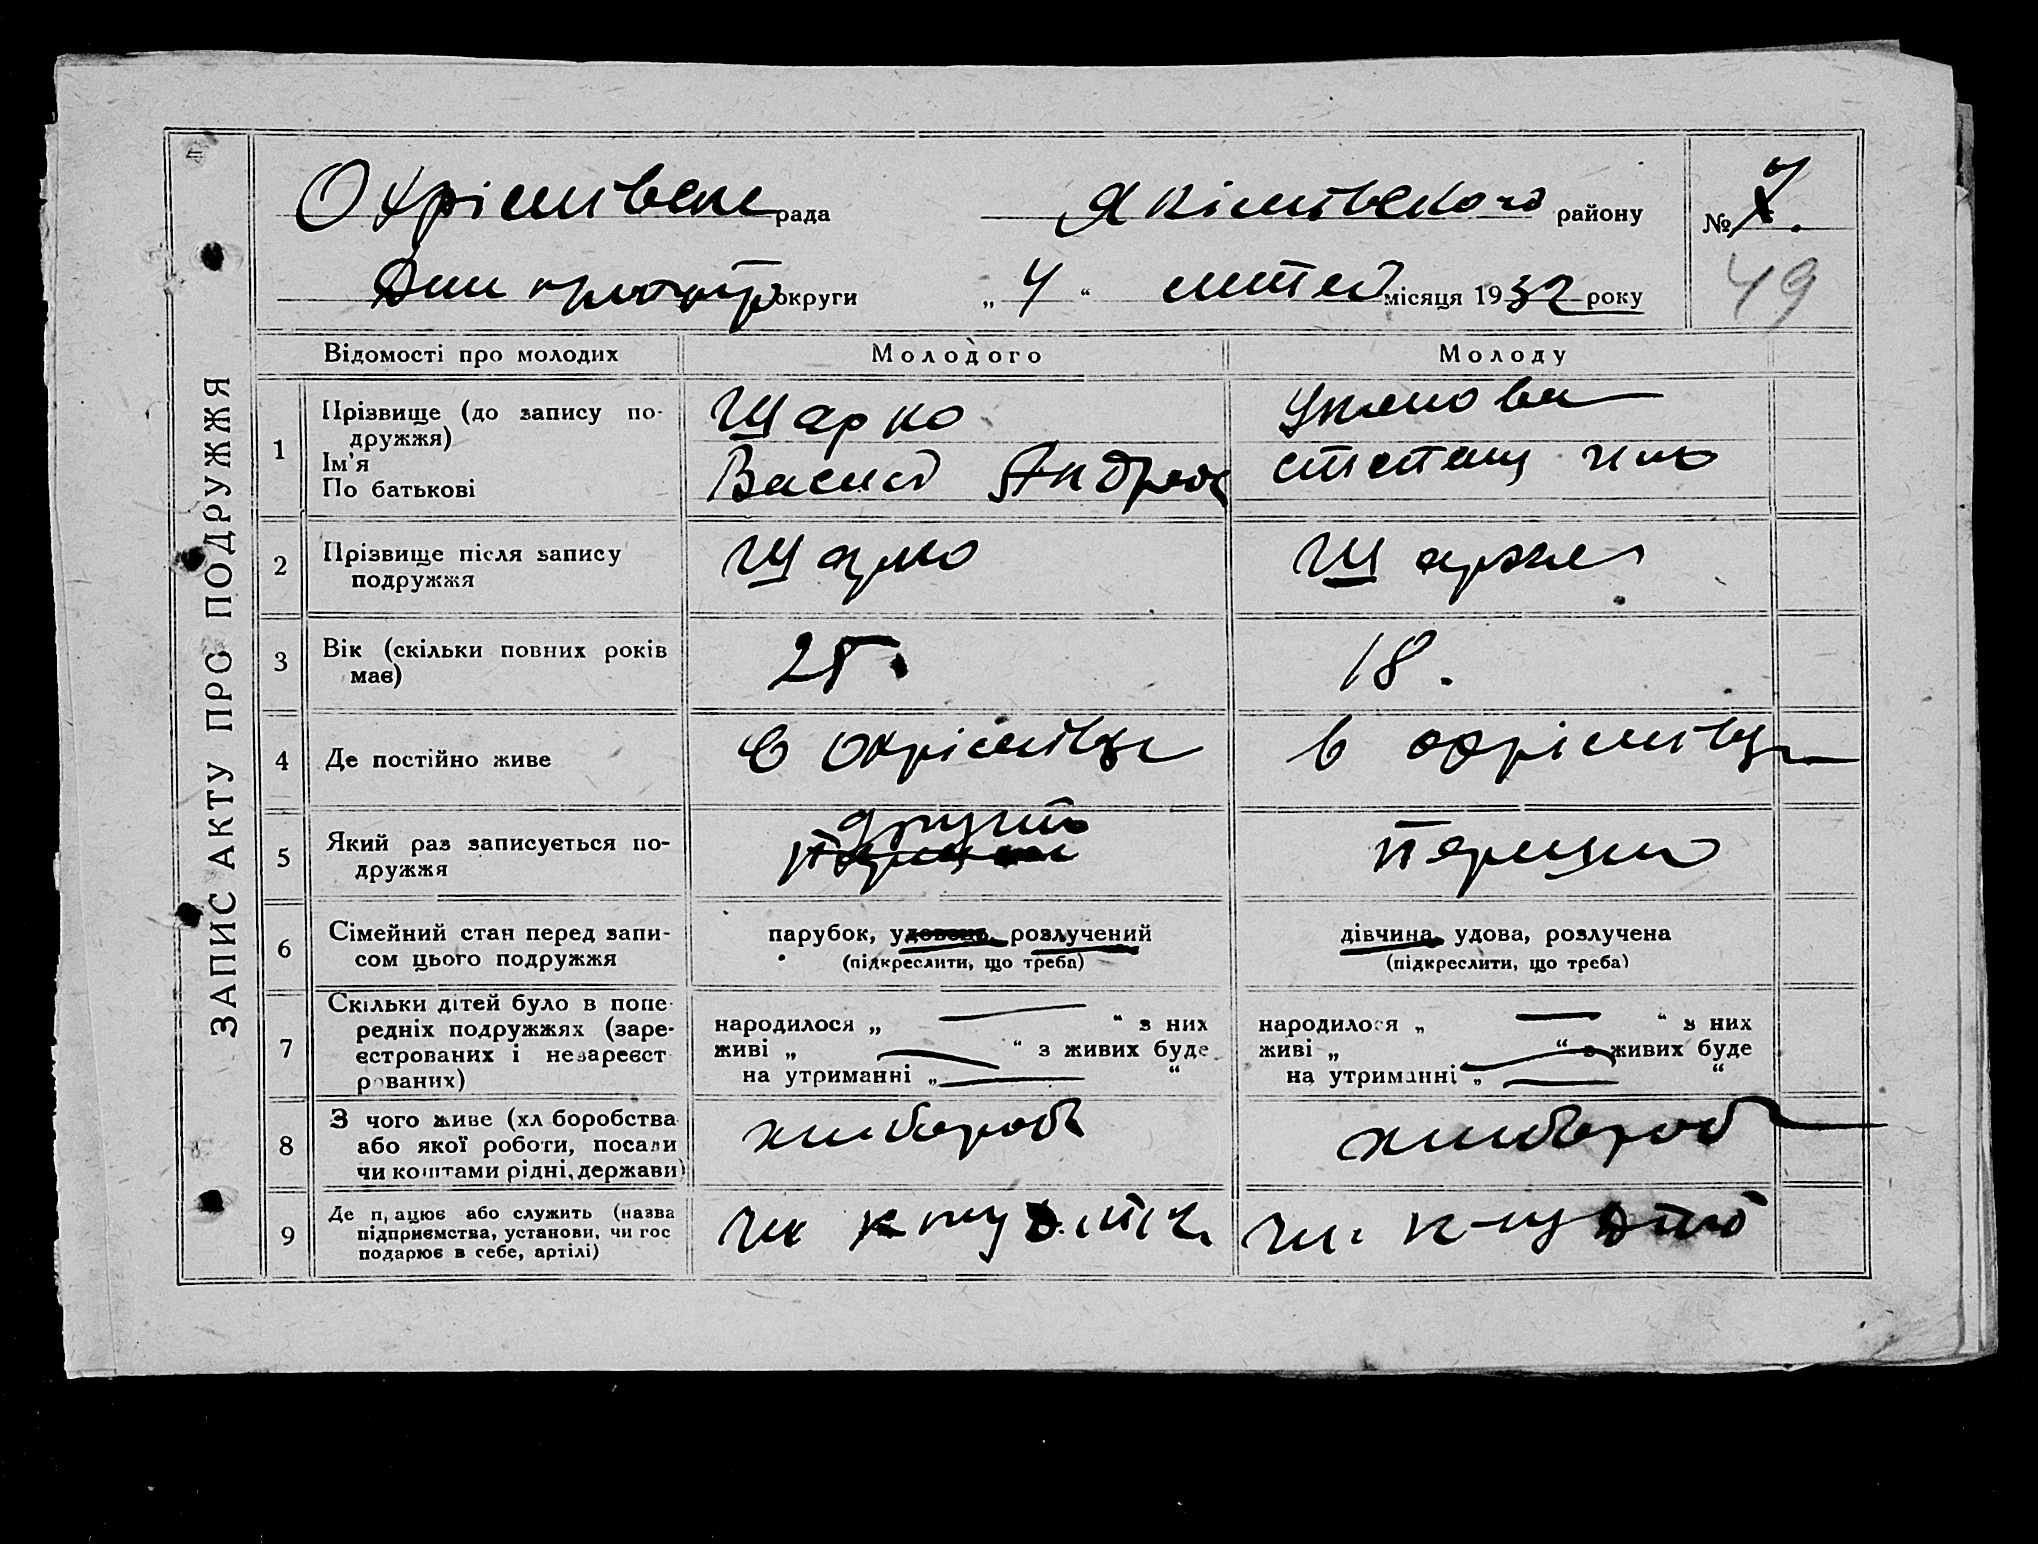 ЗАПИС АКТУ ПРО ПОДРУЖЖЯ
Охрімівська рада Якімівського району № 7.
округи „ 4 “ лютого місяця 1932 року 49
Відомості про молодих Молодого Молоду
1 Прізвище (до запису по-
дружжя)
Ім'я
По батькові
Шарко
Василь Андреев
2 Прізвище після запису
подружжя
Шарко Шарко
3 Вік (скільки повних років
має)
25. 18.
4 Де постійно живе в Охрімівці в Охрімівці
5 Який раз записується по-
дружжя
другий
перший
6 Сімейний стан перед запи-
сом цього подружжя
парубок, удовець, розлучений дівчина, удова, розлучена
(підкреслити, що треба) (підкреслити, що треба)
7 Скільки дітей було в попе-
редніх подружжях (заре-
єстрованих і незареєст
рованих)
народилося „ — “ з них народилося „ — “ з них
живі „ — “ з живих буде живі „ — “ з живих буде
на утриманні „ — “ на утриманні „ — “
8 З чого живе (хліборобства
або якої роботи, посади
чи коштами рідні, держави)
хлібороб хлібороб
9 Де працює або служить (назва
підприємства, установи, чи гос
подарює в себе, артілі)